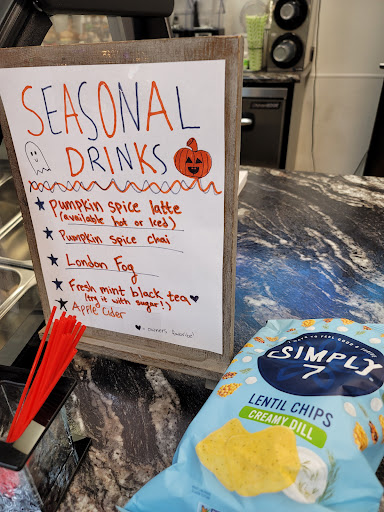 SEASONAL
DRINKS
Pumpkin spice latte
(available hot or iced)
Pumpkin spice chai
London Fog
Fresh mint black tea ♥
(try it with sugar!)
Apple Cider
♥ = owners favorite!
SIMPLY
7
LENTIL CHIPS
CREAMY DILL